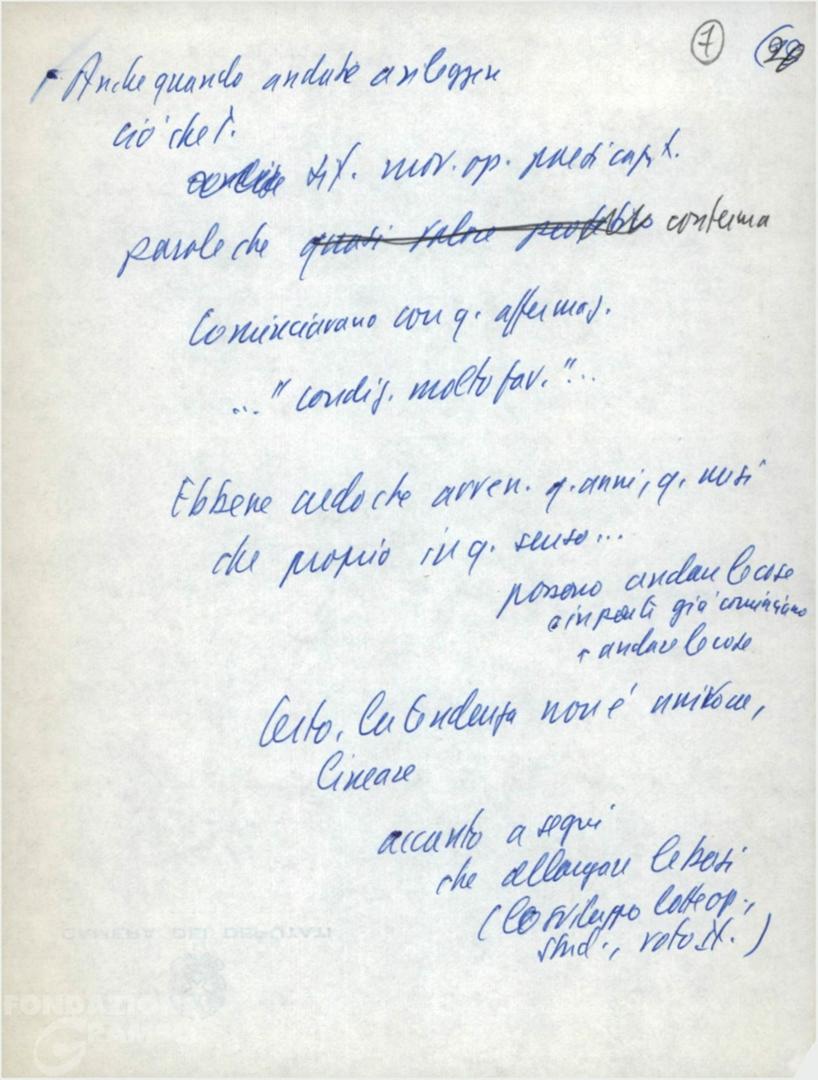 7
Anche quando andate a rileggere
ciò che T.
sit. mov. op. paesi capit.
parole che quasi valore conferma
Cominciavano con q. affermaz.
..." condiz. molto fav. "...
Ebbene credo che avven. q. anni, q. mesi
che proprio in q. senso...
possono andare le cose
e in realtà già cominciano
andare le cose
Certo, la tendenza non è univoca,
lineare
accanto a segni
che allargare le basi
(lo sviluppo lotte op.,
stud., voto It.)
CAMERA DEI DEPUTATI
FONDAZIONE
GRAMSCI